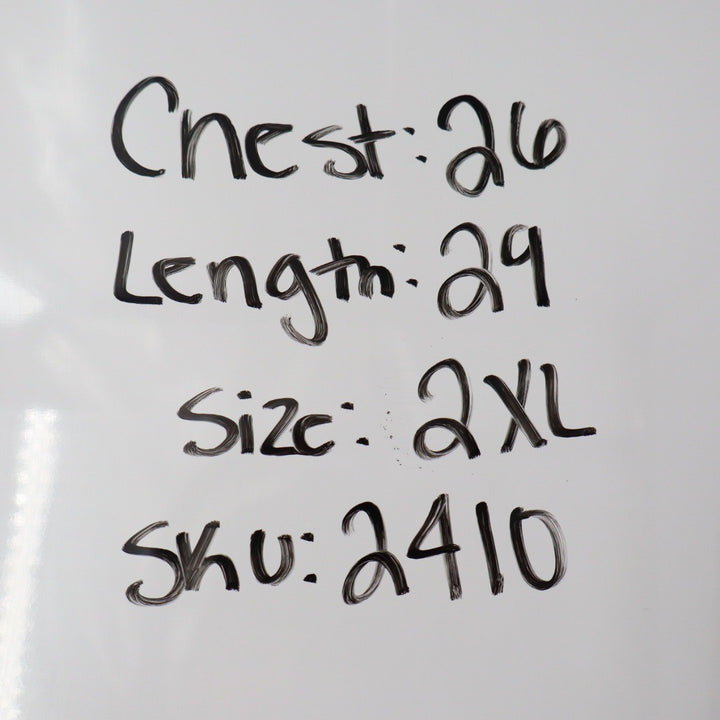 Chest: 26
Length: 29
Size: 2XL
SKU: 2410